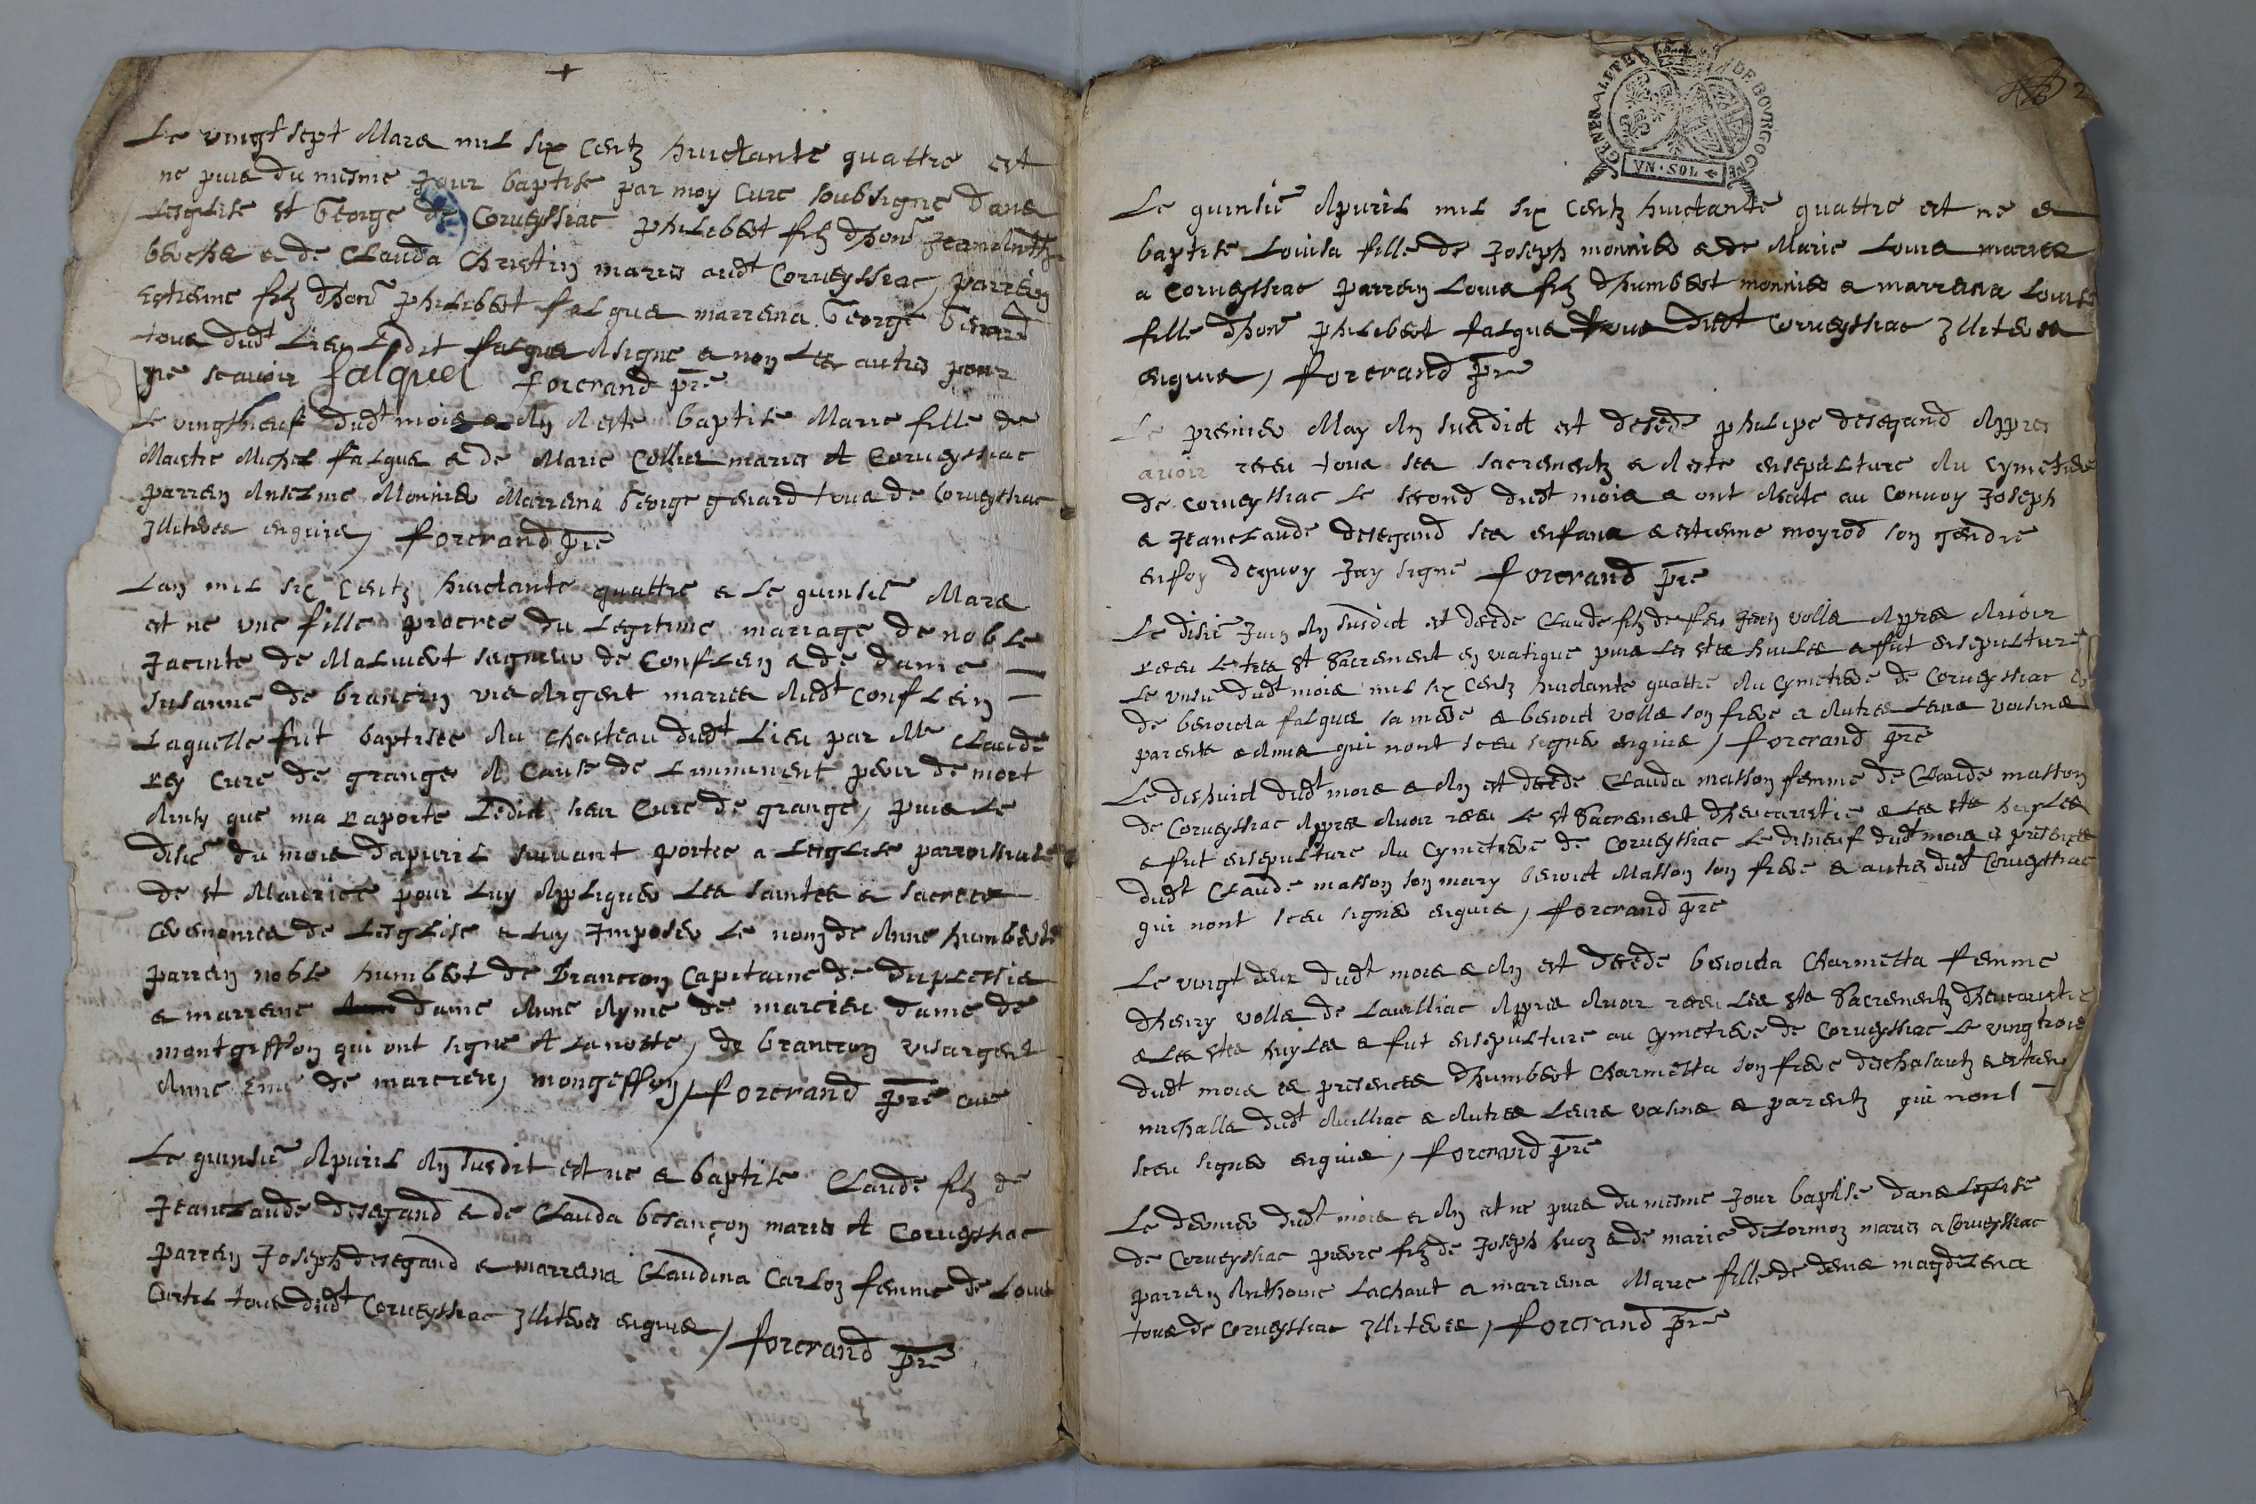 Le vingt sept Mars mil six centz huictante quattre est
ne puis du mesme Jour baptise par moy Cure soubsigne dans
Lesglise st George de Corveyssiac philebert filz dhon
e de Clauda Christin maries audt Corveyssiac, parrein
Estienne filz dhon philebert falque marrena George Genard
tous dudt Lieu Ledit falque A signe e non Les autres pour
ne scavoir falquel forcrand pre
Le vingt neuf dudt mois e An A este baptise Marie fille de
Maistre Michel falque e de Marie Collier maries A Corveyssiac
parrein Anselme Monnier Marrena George genard tous de Corveyssiac
Illiteres enquis, forcrand pre
Lan mil six Centz huictante quattre e Le quinsie Mars
est ne une fille procree du Legitime mariage de noble
Jacinte de Malivert segneur de Conflein e de dame
Susanne de brancion vis Argent maries Audt Conflein
Laquelle fut baptisee Au chasteau dudt Lieu par Mre Claude
Rey Cure de grange A Cause de Limminent peur de mort
Ainsy que ma raporte Ledict sieur Cure de grange, puis Le
disie du mois dapvril suivant portee a Lesglise parroissiale
de st Maurice pour Luy Appliquer Les saintes e sacrees
Ceremonies de Lesglise e Luy Imposer Le nom de Anne humberte
parrein noble humbert de Brancion Capitaine de duplessis
e marrene dame Anne Ayme de marcieu dame de
montgeffon qui ont signe A La notte, de brancion visargent
Anne Eme de marcieu, mongeffon, forcrand pre cure
Le quinsie Apvril An susdit est ne e baptise Claude filz de
Jeanclaude desegand e de Clauda besançon maries A Corveyssiac
parrein Joseph desegand e marrena Claudina Carloz femme de Louis
Curtil tous dudt Corveyssiac Illiteres enquis, forcrand pre
GENERALITE DE BOVRGOGNE
VN·SOL
2
Le quinsie Apvril mil six Centz huictante quattre est ne e
baptise Louisa fille de Joseph monnier e de Marie Louis maries
a Corveyssiac parrein Louis filz dhumbert monnier e marrena Louise
fille dhon philebert falque tous dudt Corveyssiac Illiteres
enquis, forcrand pre
Le premier May An susdict est decede philipe desegand Appres
avoir receu tous ses sacrementz e A este ensepulture Au cymetiere
de Corveyssiac Le second dudt mois e ont Aciste au Convoy Joseph
e Jeanclaude desegand ses enfans e estienne moyrod son gendre
en foy de quoy Jay signe forcrand pre
Le disie Juin An susdict est decede Claude filz de feu Jean volle Appres Avoir
receu Le tres st Sacrement en viatique puis Les stes huiles e fut ensepulture
Le unsie dudt mois mil six Centz huictante quattre Au Cymetiere de Corveyssiac
de benoicta falque sa mere e benoict volle son frere e Autres Leurs voisins
parents e Amis qui nont sceu signer enquis, forcrand pre
Le dishuict dudt mois e An est decede Clauda masson femme de Claude masson
de Corveyssiac Appres Avoir receu Le st Sacrement dheucaristie e Les stes huyles
e fut ensepulture Au Cymetiere de Corveyssiac Le disneuf dudt mois es presences
dudt Claude masson son mary benoict Masson son frere e autres dudt Corveyssiac
qui nont sceu signer enquis, forcrand pre
Le vingt deux dudt mois e An est decede benoicta Charmetta femme
dhenry volle de Lavilliac Appres Avoir receu Les sts Sacrementz dheucaristie
e Les stes huyles e fut ensepulture au Cymetiere de Corveyssiac Le vingt trois
dudt mois es presences dhumbert Charmetta son frere e estiene
michalle dudt Avilliac e Autres Leurs voisins e parentz qui nont
sceu signer enquis, forcrand pre
Le dernier dudt mois e An est ne puis du mesme Jour baptise dans Leglise
de Corveyssiac pierre filz de Joseph huoz e de marie delormoz maries a Corveyssiac
parrein Anthoine Lachaut e marrena Marie fille de denis magdelena
tous de Corveyssiac Illiteres, forcrand pre